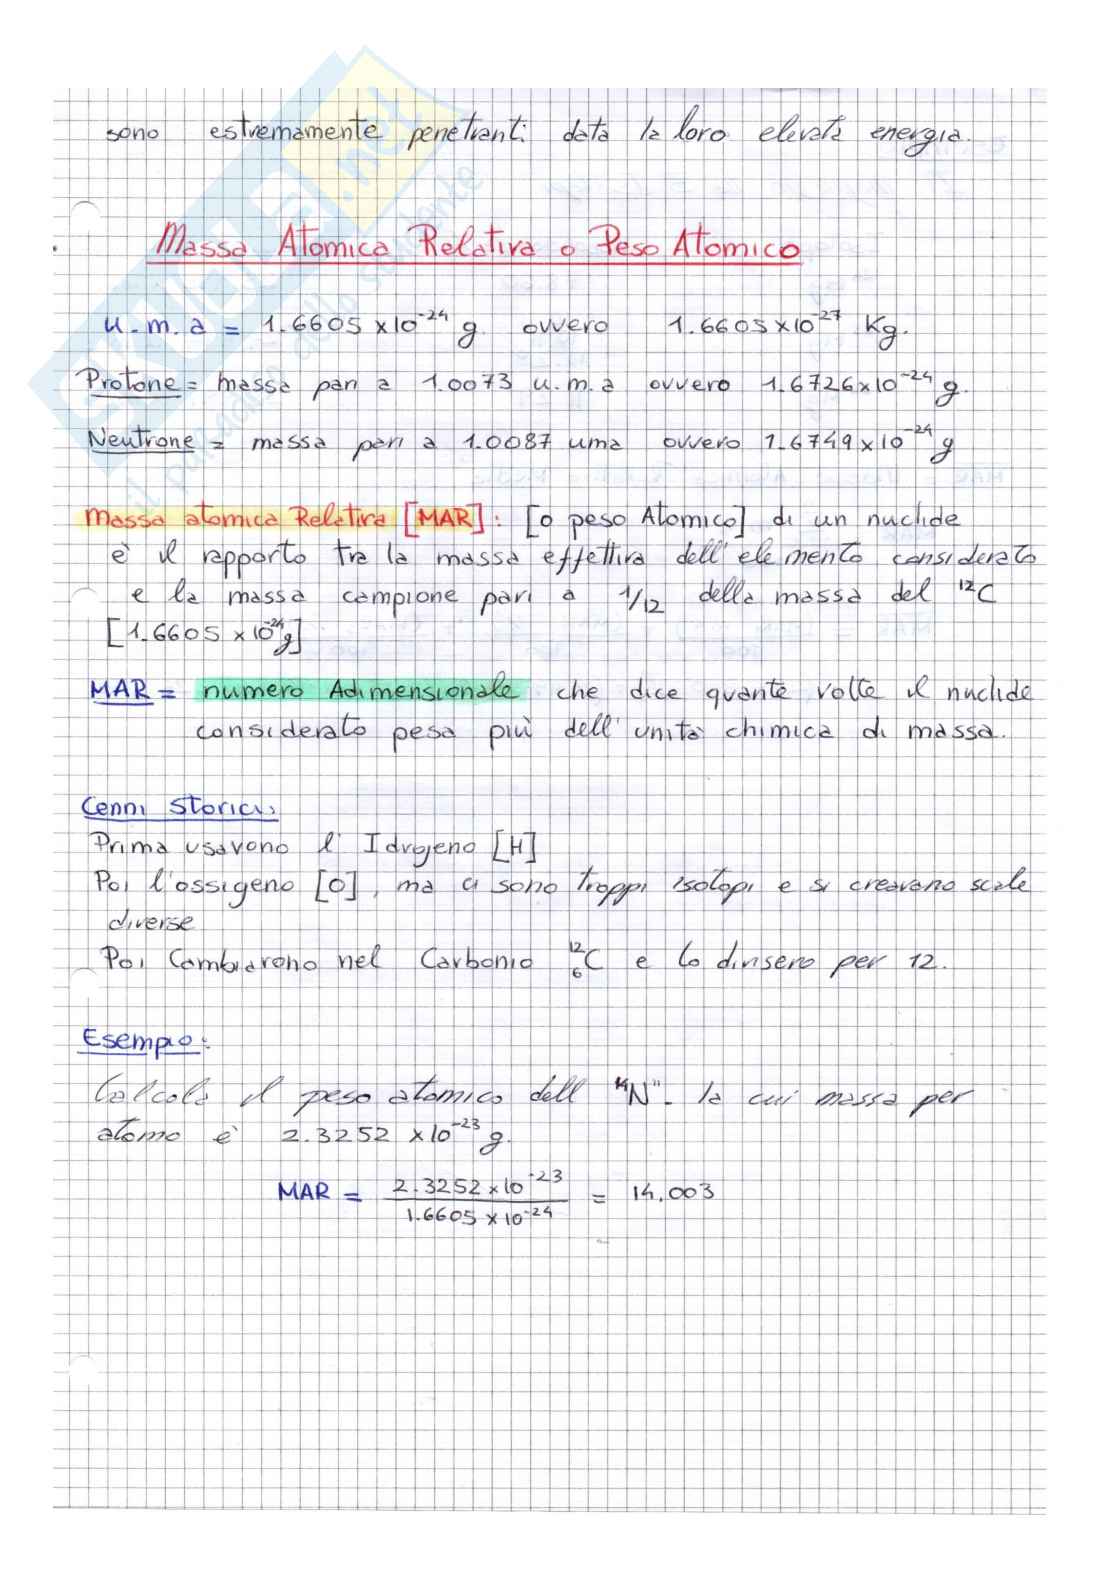 sono estremamente penetranti data la loro elevata energia.
Massa Atomica Relativa o Peso Atomico
u.m.a = 1.6605 x10⁻²⁴ g ovvero 1.6605x10⁻²⁷ Kg.
Protone = massa pari a 1.0073 u.m.a ovvero 1.6726x10⁻²⁴ g.
Neutrone = massa pari a 1.0087 uma ovvero 1.6749x10⁻²⁴ g
Massa atomica Relativa [MAR]: [o peso Atomico] di un nuclide
è il rapporto tra la massa effettiva dell'elemento considerato
e la massa campione pari a 1/12 della massa del ¹²C
[1.6605 x10⁻²⁴g]
MAR = numero Adimensionale che dice quante volte il nuclide
considerato pesa più dell'unità chimica di massa.
Cenni Storici:
Prima usavono l'Idrogeno [H]
Poi l'ossigeno [O], ma ci sono troppi isotopi e si creavano scale
diverse
Poi Cambiarono nel Carbonio ¹²₆C e lo divisero per 12.
Esempio:
Calcola il peso atomico dell "¹⁴N". la cui massa per
atomo è 2.3252 x10⁻²³ g.
MAR = 2.3252x10⁻²³ / 1.6605 x10⁻²⁴ = 14.003
SKUOLA.net
il paradiso dello studente